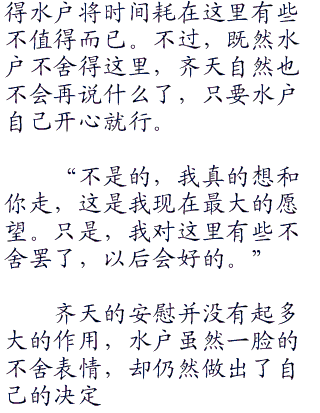 得水户将时间耗在这里有些
不值得而已。不过，既然水
户不舍得这里，齐天自然也
不会再说什么了，只要水户
自己开心就行。
“不是的，我真的想和
你走，这是我现在最大的愿
望。只是，我对这里有些不
舍罢了，以后会好的。”
齐天的安慰并没有起多
大的作用，水户虽然一脸的
不舍表情，却仍然做出了自
己的决定